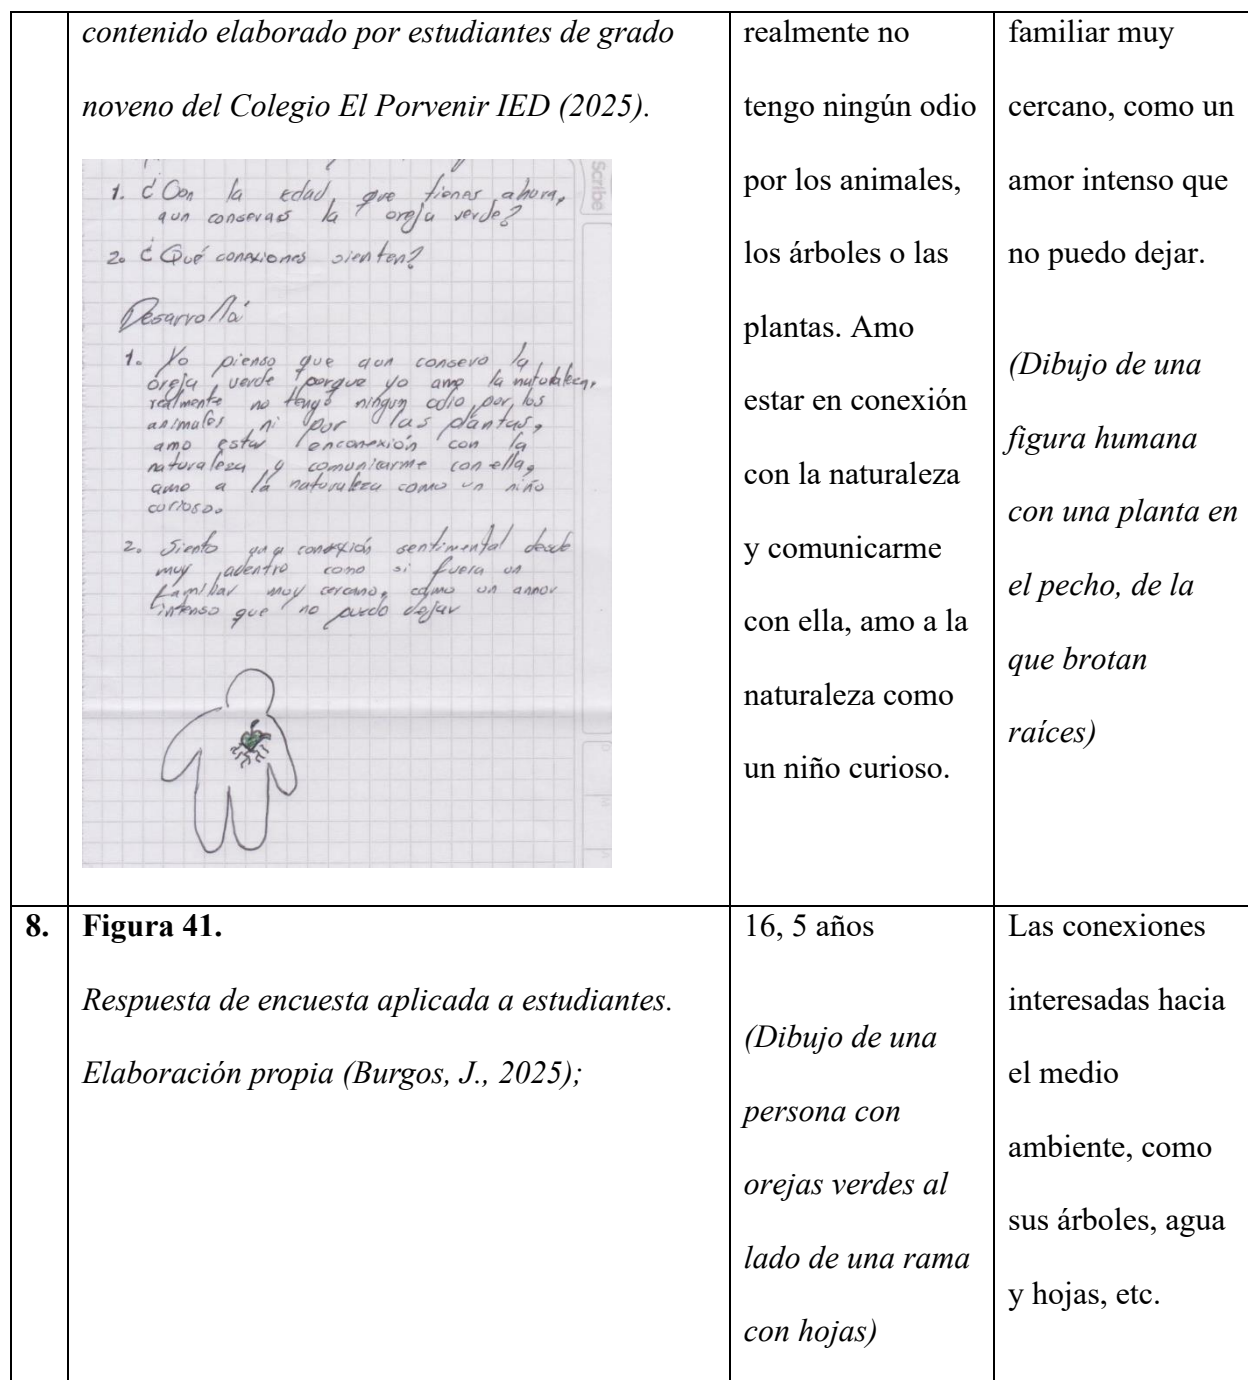 contenido elaborado por estudiantes de grado
noveno del Colegio El Porvenir IED (2025).
Scribe
1. ¿Con la edad que tienes ahora,
aun conservas la oreja verde?
2. ¿Qué conexiones sienten?
Desarrollo
1. Yo pienso que aun consevo la
oreja verde porque yo amo la naturaleza,
realmente no tengo ningun odio por los
animales ni por las plantas,
amo estar enconexión con la
naturaleza y comunicarme con ella,
amo a la naturaleza como un niño
curioso.
2. Siento una conexión sentimental desde
muy adentro como si fuera un
familiar muy cercano, como un amor
intenso que no puedo dejar
realmente no
tengo ningún odio
por los animales,
los árboles o las
plantas. Amo
estar en conexión
con la naturaleza
y comunicarme
con ella, amo a la
naturaleza como
un niño curioso.
familiar muy
cercano, como un
amor intenso que
no puedo dejar.
(Dibujo de una
figura humana
con una planta en
el pecho, de la
que brotan
raíces)
8.
Figura 41.
Respuesta de encuesta aplicada a estudiantes.
Elaboración propia (Burgos, J., 2025);
16, 5 años
(Dibujo de una
persona con
orejas verdes al
lado de una rama
con hojas)
Las conexiones
interesadas hacia
el medio
ambiente, como
sus árboles, agua
y hojas, etc.